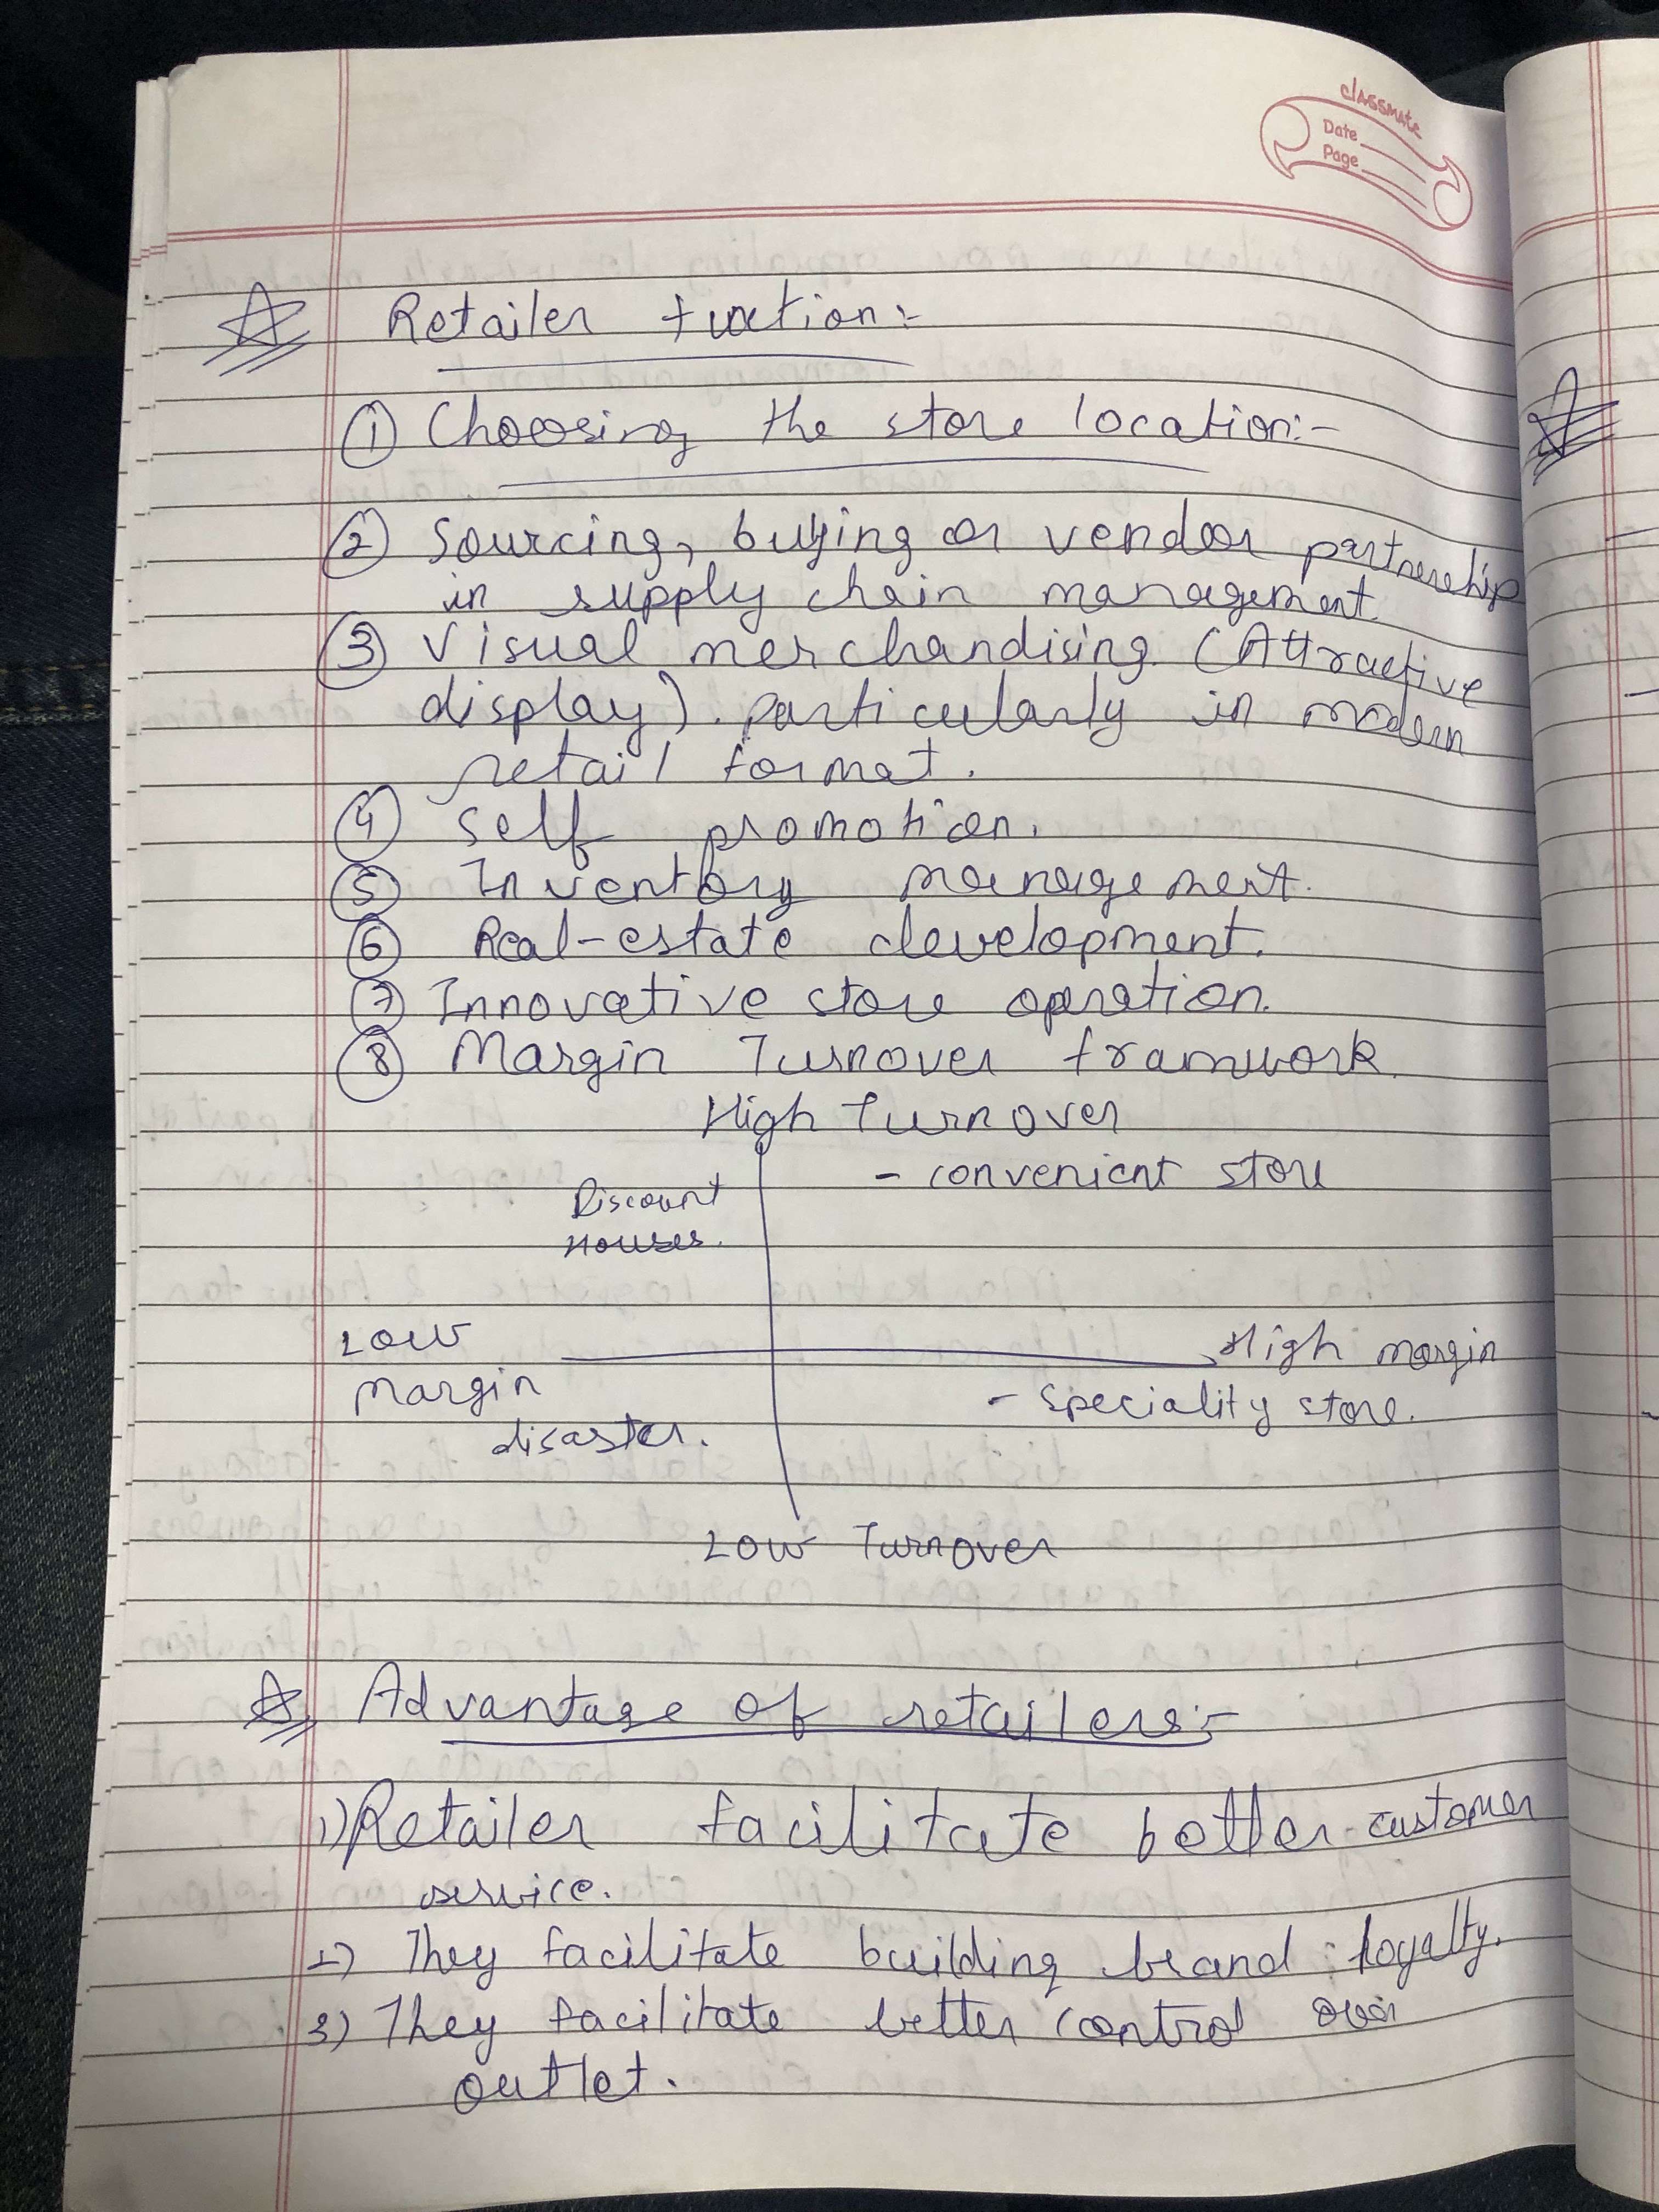 classmate
Date
Page
Retailer function:-
① Choosing the store location:-
② Sourcing, buying or vendor partnership
in supply chain management.
③ Visual merchandising (Attractive
display). particularly in modern
retail format.
④ Self promotion.
⑤ Inventory management.
⑥ Real-estate development.
⑦ Innovative store operation.
⑧ Margin Turnover framwork.
High Turnover
- convenient store
Discount
Houses.
Low
Margin
High margin
- speciality store.
disaster.
Low Turnover
Advantage of retailers:-
1) Retailer facilitate better customer
service.
2) They facilitate building brand loyalty.
3) They facilitate better control over
outlet.